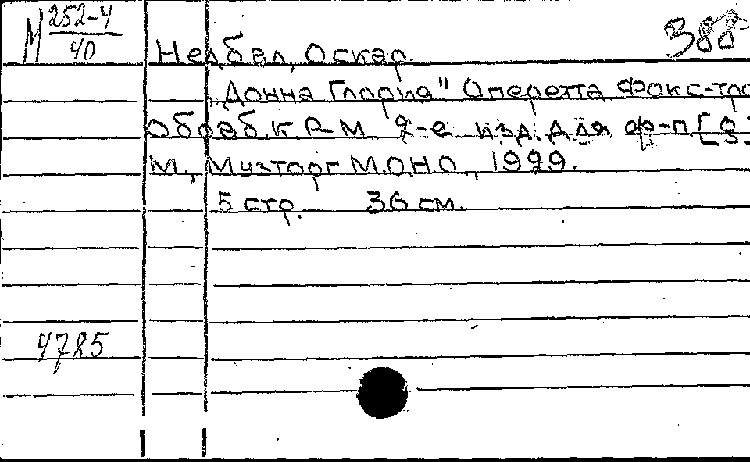 М 252-4/40
388
Недбал, Оскар.
„Донна Глория" Оперетта Фокс-тро
Обраб. К.Р-М. 2-е изд. для ф-п [
М., Музторг М.О.Н.О., 1929.
5 стр. 36 см.
4785